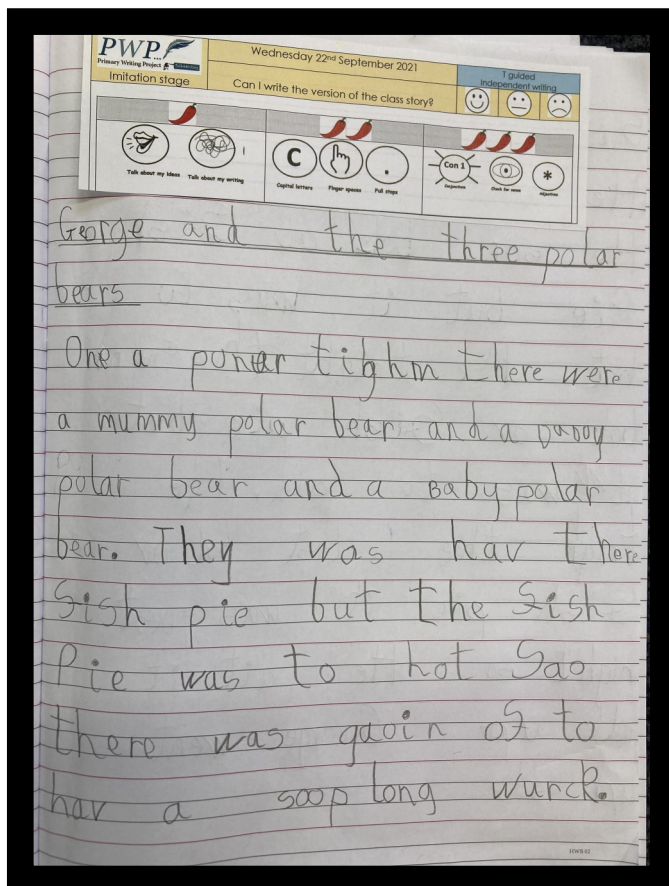 PWP
Primary Writing Project
Wednesday 22nd September 2021
T guided
Independent writing
Imitation stage
Can I write the version of the class story?
C
Con 1
*
Talk about my ideas
Talk about my writing
Capital letters
Finger spaces
Full stops
Conjunctions
Check for sense
Adjectives
George and the three polar
bears
One a ponar tighm there were
a mummy polar bear and a
polar bear and a Baby polar
bear. They was hav there
fish pie but the fish
Pie was to hot Sao
there was gaoin of to
hav a soop long wurck.